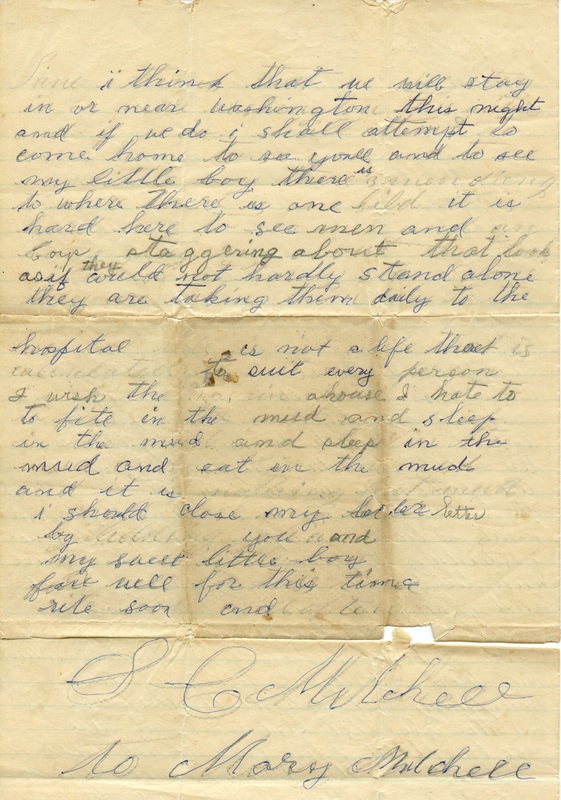 i think that we will stay
in or near washington this night
and if we do i shall attempt to
come home to see youll and to see
my little boy there is
to where there is one it is
hard here to see men and
boys staggering about that look
as if they could not hardly stand alone
they are taking them daily to the
hospital is not a life that is
to suit every person
I wish the a house I hate to
to fite in the mud and sleep
in the mud and sleep in the
mud and eat in the mud
and it is
i should close my letter letter
by you and
my sweet little boy
fare well for this time
rite soon and
S C Mitchell
to Mary Mitchell